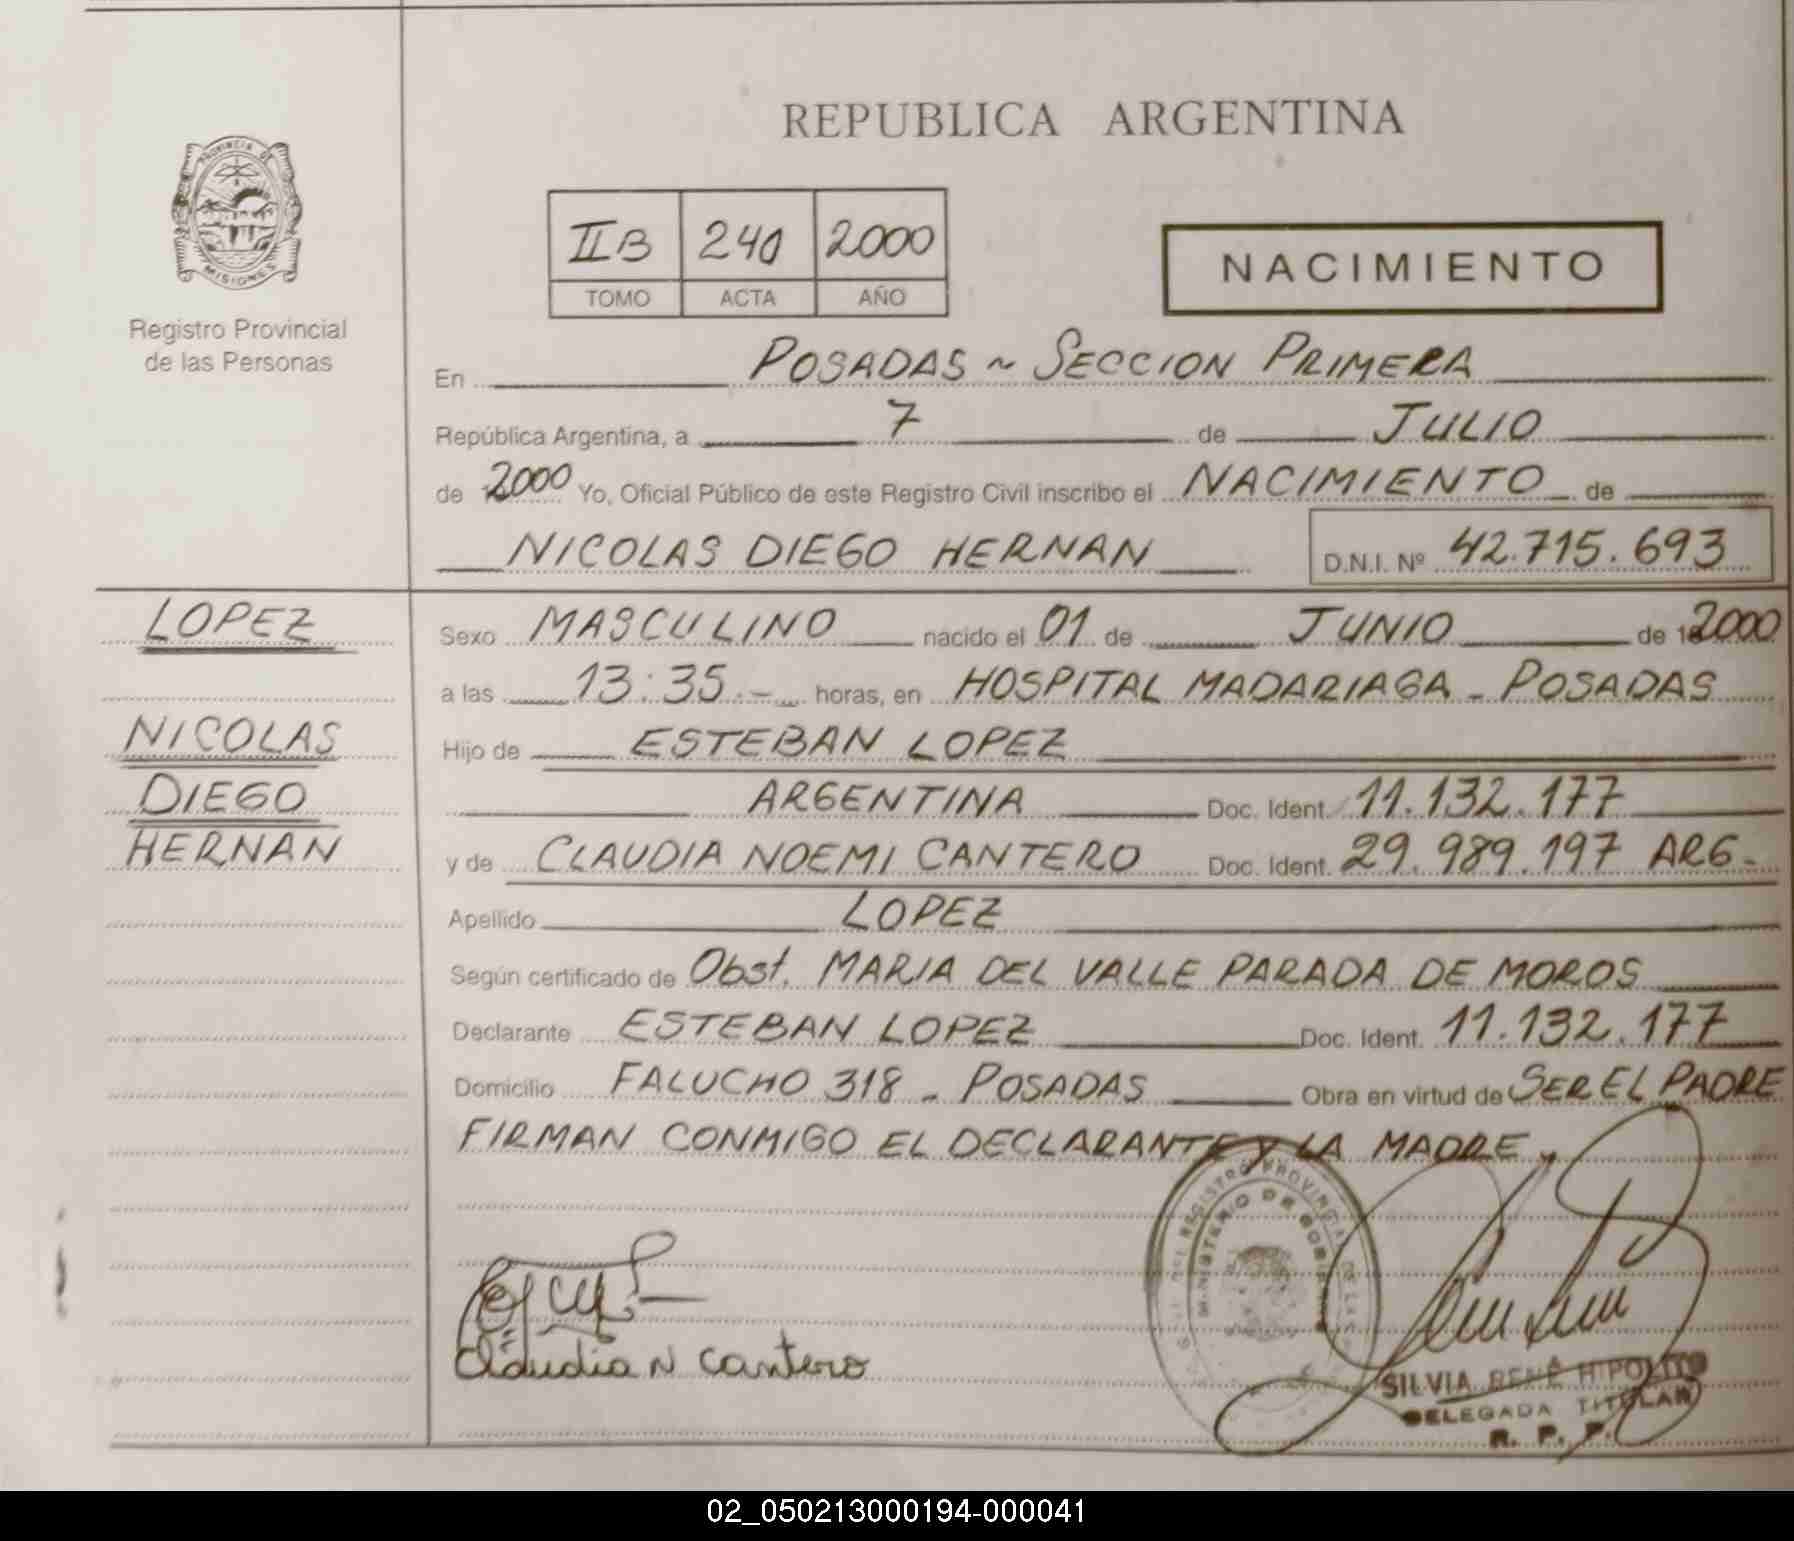 REPUBLICA ARGENTINA
PROVINCIA DE
MISIONES
Registro Provincial
de las Personas
IIB 240 2000
TOMO ACTA AÑO
NACIMIENTO
En POSADAS ~ SECCION PRIMERA
República Argentina, a 7 de JULIO
de 2000 Yo, Oficial Público de este Registro Civil inscribo el NACIMIENTO de
NICOLAS DIEGO HERNAN D.N.I. Nº 42.715.693
LOPEZ
NICOLAS
DIEGO
HERNAN
Sexo MASCULINO nacido el 01 de JUNIO de 2000
a las 13:35.- horas, en HOSPITAL MADARIAGA - POSADAS
Hijo de ESTEBAN LOPEZ
ARGENTINA Doc. Ident. 11.132.177
y de CLAUDIA NOEMI CANTERO Doc. Ident. 29.989.197 ARG-
Apellido LOPEZ
Según certificado de Obst. MARIA DEL VALLE PARADA DE MOROS
Declarante ESTEBAN LOPEZ Doc. Ident. 11.132.177
Domicilio FALUCHO 318 - POSADAS Obra en virtud de SER EL PADRE
FIRMAN CONMIGO EL DECLARANTE Y LA MADRE -
REGISTRO PROVINCIAL DE LAS
MINISTERIO DE GOBIERNO
Claudia N Cantero
SILVIA RENÉ HIPOLITO
DELEGADA TITULAR
R. P. P.
02_050213000194-000041